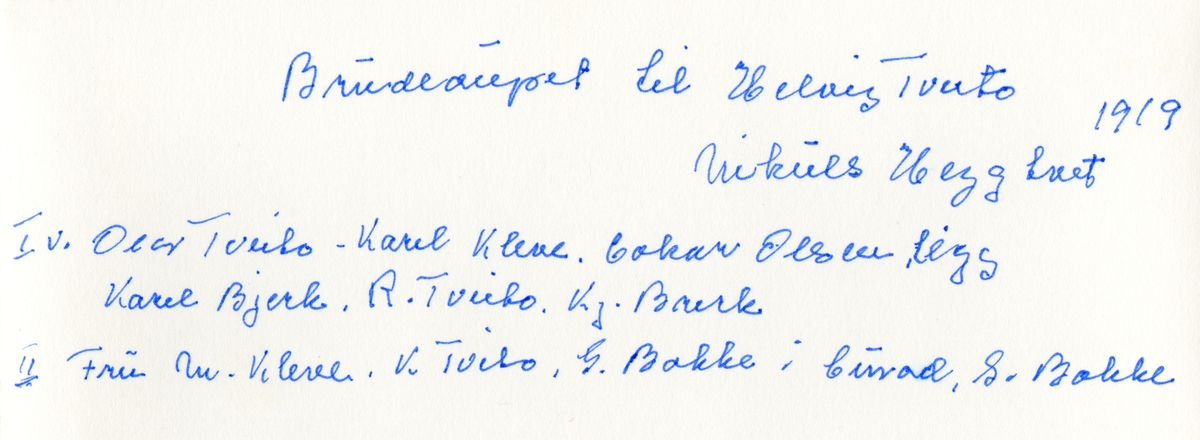 Brudlaupet til Helvig Tveito
1919
Nikuls Heggtveit
I. v. Olav Tveito - Karel Kleve. Oskar Olsen,
Karel Bjerk, R. Tveito. Kj. Bakk
II Fru M. Kleve. K. Tveito, G. Bakke i bunad, S. Bakke